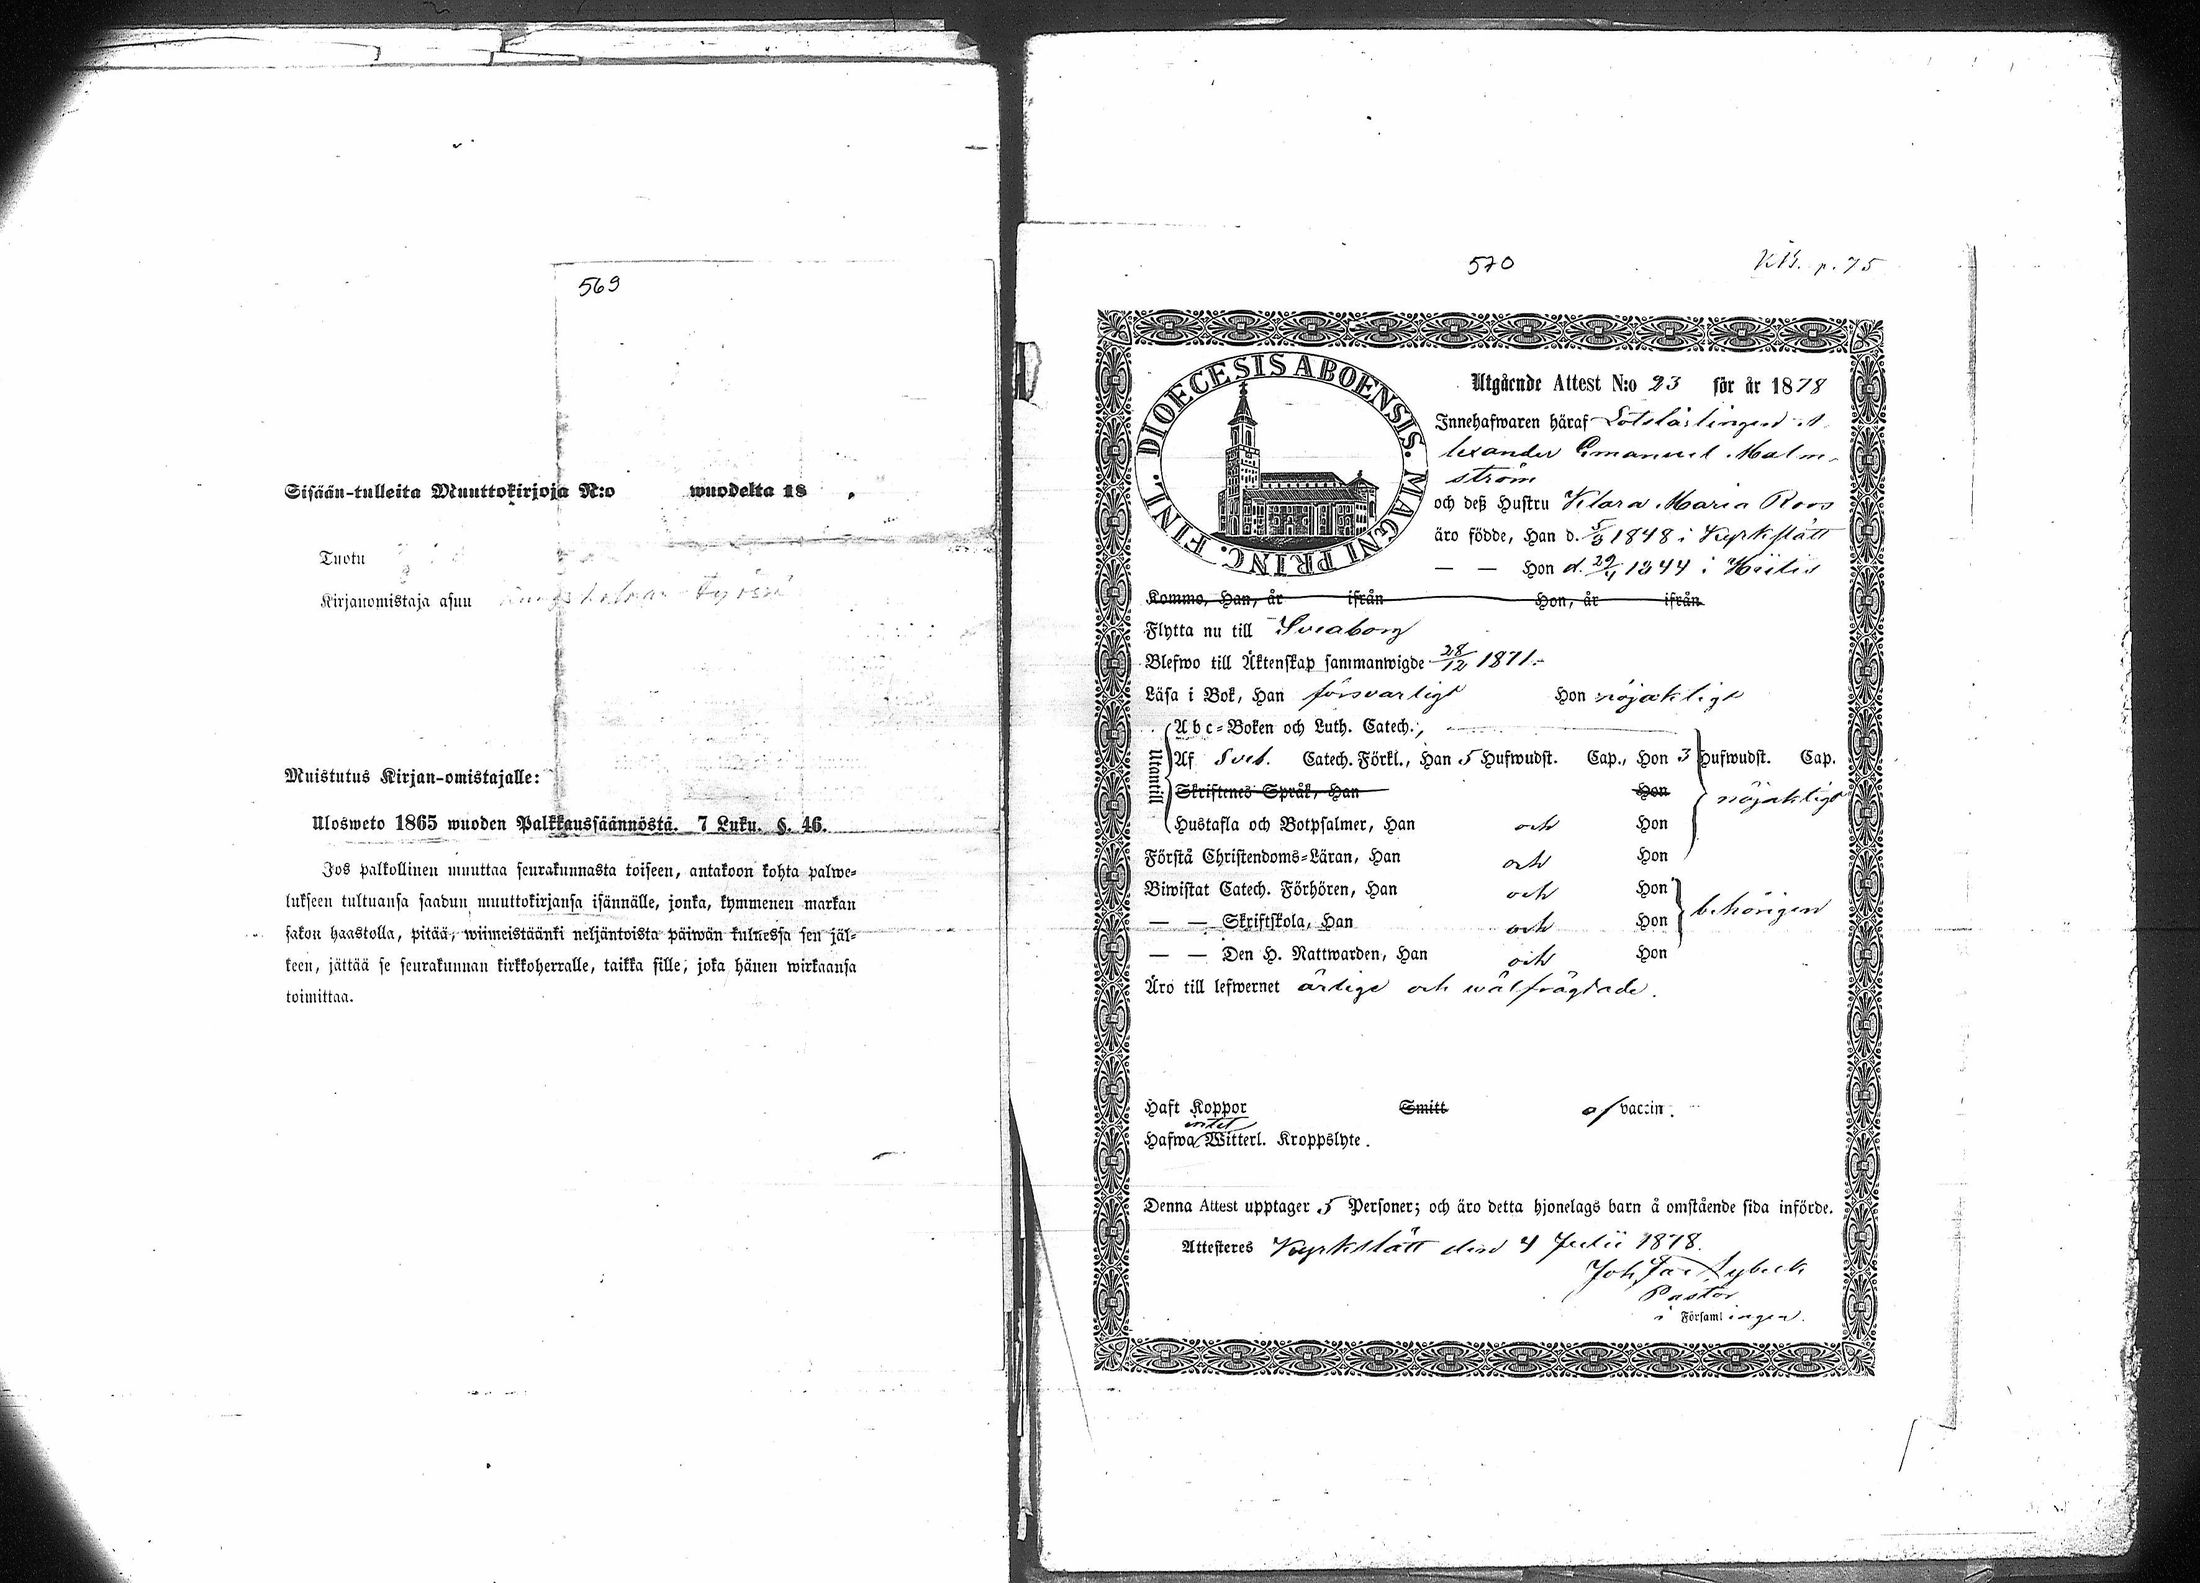 569
Sisään-tulleita Muuttokirjoja N:o wuodelta 18 .
Tuotu
Kirjanomistaja asuu
Muistutus Kirjan-omistajalle:
Ulosweto 1865 wuoden Palkkaussäännöstä. 7 Luku. §. 46.
Jos palkollinen muuttaa seurakunnasta toiseen, antakoon kohta palwe-
lukseen tultuansa saadun muuttokirjansa isännälle, jonka, kymmenen markan
sakon haastolla, pitää, wiimeistäänki neljäntoista päiwän kuluessa sen jäl-
keen, jättää se seurakunnan kirkkoherralle, taikka sille, joka hänen wirkaansa
toimittaa.
570
KB. p. 75
DIOECESIS ABOENSIS. MAGNI PRINC. FINL.
Utgående Attest N:o 23 för år 1878
Innehafwaren häraf Lotslärlingen A
lexander Emanuel Malm-
ström
och deß Hustru Klara Maria Roos
äro födde, Han d. 5/9 1848 i Kyrkslätt
— — Hon d. 29/4 1844 i Hiitis
Kommo, Han, år ifrån Hon, år ifrån
Flytta nu till Sveaborg
Blefwo till Äktenskap sammanwigde 28/12 1871.
Läsa i Bok, Han försvarligt Hon nöjaktligt
Utantill
Abc-Boken och Luth. Catech.,
Af Sveb. Catech. Förkl., Han 5 Hufwudst. Cap., Hon 3 Hufwudst. Cap.
Skriftenes Språk, Han Hon
nöjaktligt
Hustafla och Botpsalmer, Han och Hon
Förstå Christendoms-Läran, Han och Hon
Biwistat Catech. Förhören, Han och Hon
behörigen
— — Skriftskola, Han och Hon
— — Den H. Nattwarden, Han och Hon
Äro till lefwernet ärlige och wälfrägdade.
Haft Koppor Smitt af vaccin.
intet
Hafwa Witterl. Kroppslyte.
Denna Attest upptager 5 Personer; och äro detta hjonelags barn å omstående sida införde.
Attesteres Kyrkslätt den 4 Julii 1878.
Joh Fae Lybeck
Pastor
i Församlingen.